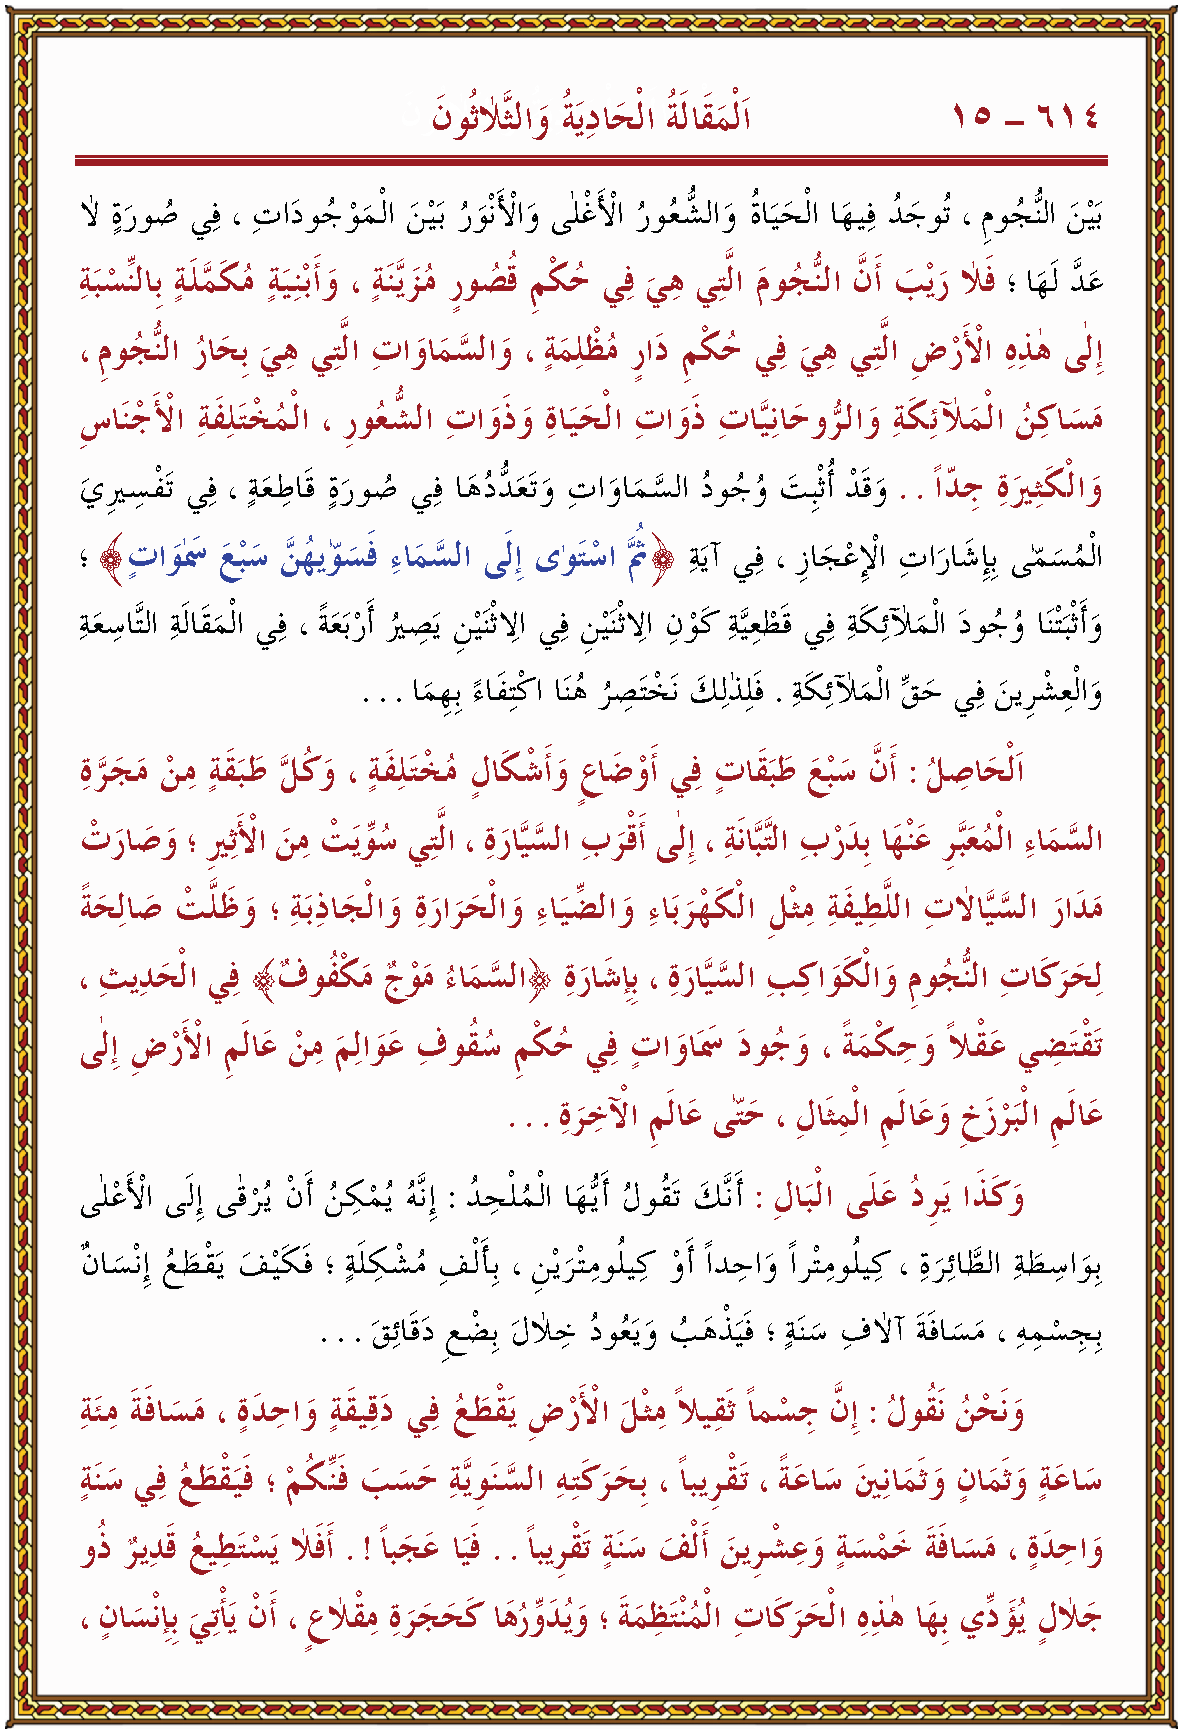 ٦١٤ – ١٥ اَلْمَقَالَةُ الْحَادِيَةُ وَالثَّلاٰثُونَ
بَيْنَ النُّجُومِ ، تُوجَدُ فِيهَا الْحَيَاةُ وَالشُّعُورُ الْأَغْلٰى وَالْأَنْوَرُ بَيْنَ الْمَوْجُودَاتِ ، فِي صُورَةٍ لاٰ
عَدَّ لَهَا ؛ فَلاٰ رَيْبَ أَنَّ النُّجُومَ الَّتِي هِيَ فِي حُكْمِ قُصُورٍ مُزَيَّنَةٍ ، وَأَبْنِيَةٍ مُكَمَّلَةٍ بِالنِّسْبَةِ
إِلٰى هٰذِهِ الْأَرْضِ الَّتِي هِيَ فِي حُكْمِ دَارٍ مُظْلِمَةٍ ، وَالسَّمَاوَاتِ الَّتِي هِيَ بِحَارُ النُّجُومِ ،
مَسَاكِنُ الْمَلاٰۤئِكَةِ وَالرُّوحَانِيَّاتِ ذَوَاتِ الْحَيَاةِ وَذَوَاتِ الشُّعُورِ ، الْمُخْتَلِفَةِ الْأَجْنَاسِ
وَالْكَثِيرَةِ جِدّاً . . وَقَدْ أُثْبِتَ وُجُودُ السَّمَاوَاتِ وَتَعَدُّدُهَا فِي صُورَةٍ قَاطِعَةٍ ، فِي تَفْسِيرِيَ
الْمُسَمّٰى بِإِشَارَاتِ الْإِعْجَازِ ، فِي آيَةِ ﴿ثُمَّ اسْتَوٰى إِلَى السَّمَاءِ فَسَوّٰيهُنَّ سَبْعَ سَمٰوَاتٍ﴾ ؛
وَأَثْبَتْنَا وُجُودَ الْمَلاٰۤئِكَةِ فِي قَطْعِيَّةِ كَوْنِ الْاِثْنَيْنِ فِي الْاِثْنَيْنِ يَصِيرُ أَرْبَعَةً ، فِي الْمَقَالَةِ التَّاسِعَةِ
وَالْعِشْرِينَ فِي حَقِّ الْمَلاٰۤئِكَةِ . فَلِذٰلِكَ نَخْتَصِرُ هُنَا اكْتِفَاءً بِهِمَا . . .
اَلْحَاصِلُ : أَنَّ سَبْعَ طَبَقَاتٍ فِي أَوْضَاعٍ وَأَشْكَالٍ مُخْتَلِفَةٍ ، وَكُلَّ طَبَقَةٍ مِنْ مَجَرَّةِ
السَّمَاءِ الْمُعَبَّرِ عَنْهَا بِدَرْبِ التَّبَّانَةِ ، إِلٰى أَقْرَبِ السَّيَّارَةِ ، الَّتِي سُوِّيَتْ مِنَ الْأَثِيرِ ؛ وَصَارَتْ
مَدَارَ السَّيَّالاٰتِ اللَّطِيفَةِ مِثْلِ الْكَهْرَبَاءِ وَالضِّيَاءِ وَالْحَرَارَةِ وَالْجَاذِبَةِ ؛ وَظَلَّتْ صَالِحَةً
لِحَرَكَاتِ النُّجُومِ وَالْكَوَاكِبِ السَّيَّارَةِ ، بِإِشَارَةِ ﴿السَّمَاءُ مَوْجٌ مَكْفُوفٌ﴾ فِي الْحَدِيثِ ،
تَقْتَضِي عَقْلاً وَحِكْمَةً ، وَجُودَ سَمَاوَاتٍ فِي حُكْمِ سُقُوفِ عَوَالِمَ مِنْ عَالَمِ الْأَرْضِ إِلٰى
عَالَمِ الْبَرْزَخِ وَعَالَمِ الْمِثَالِ ، حَتّٰى عَالَمِ الْآخِرَةِ . . .
وَكَذَا يَرِدُ عَلَى الْبَالِ : أَنَّكَ تَقُولُ أَيُّهَا الْمُلْحِدُ : إِنَّهُ يُمْكِنُ أَنْ يُرْقٰى إِلَى الْأَعْلٰى
بِوَاسِطَةِ الطَّائِرَةِ ، كِيلُومِتْراً وَاحِداً أَوْ كِيلُومِتْرَيْنِ ، بِأَلْفِ مُشْكِلَةٍ ؛ فَكَيْفَ يَقْطَعُ إِنْسَانٌ
بِجِسْمِهِ ، مَسَافَةَ آلاٰفِ سَنَةٍ ؛ فَيَذْهَبُ وَيَعُودُ خِلاٰلَ بِضْعِ دَقَائِقَ . . .
وَنَحْنُ نَقُولُ : إِنَّ جِسْماً ثَقِيلاً مِثْلَ الْأَرْضِ يَقْطَعُ فِي دَقِيقَةٍ وَاحِدَةٍ ، مَسَافَةَ مِئَةِ
سَاعَةٍ وَثَمَانٍ وَثَمَانِينَ سَاعَةً ، تَقْرِيباً ، بِحَرَكَتِهِ السَّنَوِيَّةِ حَسَبَ فَنِّكُمْ ؛ فَيَقْطَعُ فِي سَنَةٍ
وَاحِدَةٍ ، مَسَافَةَ خَمْسَةٍ وَعِشْرِينَ أَلْفَ سَنَةٍ تَقْرِيباً . . فَيَا عَجَباً ! . أَفَلاٰ يَسْتَطِيعُ قَدِيرٌ ذُو
جَلاٰلٍ يُؤَدِّي بِهَا هٰذِهِ الْحَرَكَاتِ الْمُنْتَظِمَةَ ؛ وَيُدَوِّرُهَا كَحَجَرَةِ مِقْلاٰعٍ ، أَنْ يَأْتِيَ بِإِنْسَانٍ ،